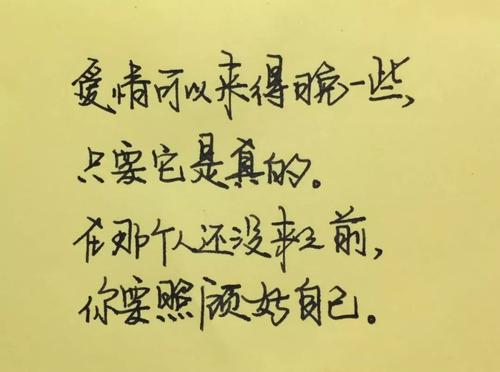 爱情可以来得晚一些，
只要它是真的。
在那个人还没来之前，
你要照顾好自己。